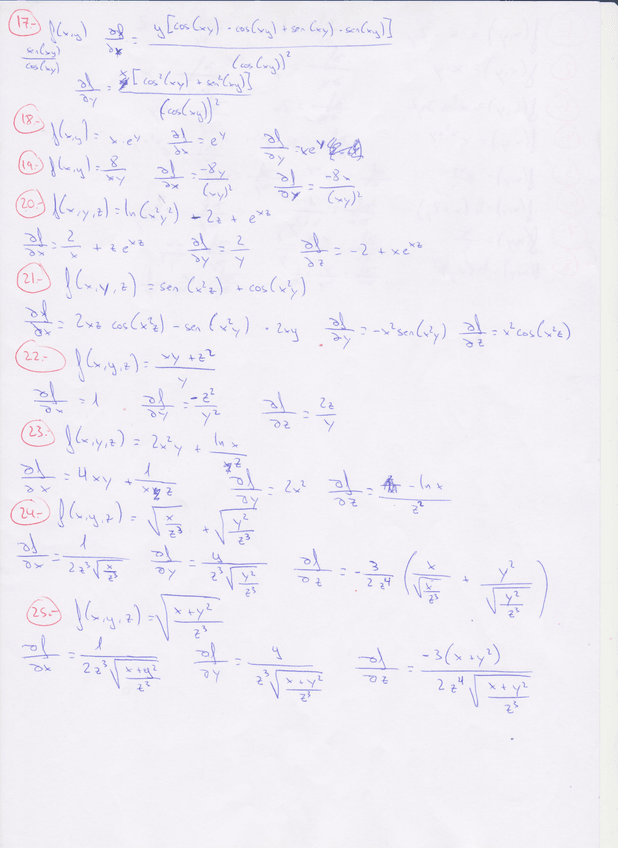 17.- f(x,y) ∂f/∂x = y[cos(xy)·cos(xy)+sen(xy)·sen(xy)]/(cos(xy))²
sen(xy)/cos(xy)
∂f/∂y = x[cos²(xy)+sen²(xy)]/(cos(xy))²
18.- f(x,y) = x·e^y ∂f/∂x = e^y ∂f/∂y = xe^y
19.- f(x,y) = 8/xy ∂f/∂x = -8y/(xy)² ∂f/∂y = -8x/(xy)²
20.- f(x,y,z) = ln(x²y²) - 2z + e^xz
∂f/∂x = 2/x + ze^xz ∂f/∂y = 2/y ∂f/∂z = -2 + xe^xz
21.- f(x,y,z) = sen(x²z) + cos(x²y)
∂f/∂x = 2xz cos(x²z) - sen(x²y) · 2xy ∂f/∂y = -x²sen(x²y) ∂f/∂z = x²cos(x²z)
22.- f(x,y,z) = xy+z²/y
∂f/∂x = 1 ∂f/∂y = -z²/y² ∂f/∂z = 2z/y
23.- f(x,y,z) = 2x²y + ln x/z
∂f/∂x = 4xy + 1/xz ∂f/∂y = 2x² ∂f/∂z = -ln x/z²
24.- f(x,y,z) = √(x/z³) + √(y²/z³)
∂f/∂x = 1/(2z³√(x/z³)) ∂f/∂y = y/(z³√(y²/z³)) ∂f/∂z = -3/2z⁴ (x/√(x/z³) + y²/√(y²/z³))
25.- f(x,y,z) = √((x+y²)/z³)
∂f/∂x = 1/(2z³√((x+y²)/z³)) ∂f/∂y = y/(z³√((x+y²)/z³)) ∂f/∂z = -3(x+y²)/(2z⁴√((x+y²)/z³))